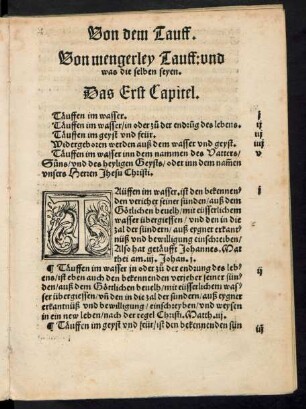 Von dem Tauff.
Von mengerley Tauff: vnd
was die selben seyen.
Das Erst Capitel.
Täuffen im wasser. j
Täuffen im wasser/in oder zů der endrũg des lebens. ij
Täuffen im geyst vnd feür. iij
Widergeboren werden auß dem wasser vnd geyst. iiij
Täuffen im wasser inn dem nammen des Vatters/ v
Süns/vnd des heyligen Geysts/oder inn dem namen
vnsers Herren Jhesu Christi.
TAüffen im wasser, ist den bekennen/ j
den verieher seiner sünden/auß dem
Götlichen beuelh/mit eüsserlichem
wasser übergiessen/vnd den in die
zal der sündern/auß eygner erkant
nüß vnd bewilligung einschreiben/
Also hat getäufft Johannes. Mat
thei am .iij. Johan.j.
¶ Täuffen im wasser in oder zů der endung des leb/ ij
ens/ist eben auch den bekennenden verjeher seiner sün
den/auß dem Götlichen beuelh/mit eüsserlichem was/
ser übergiessen/vñ den in die zal der sündern/auß eygner
erkantnüß vnd bewilligung/einschreyben/vnd weysen
in ein new leben/nach der regel Christi. Matth.iij.
¶ Täuffen im geyst vnd feür/ist den bekennenden sün iij